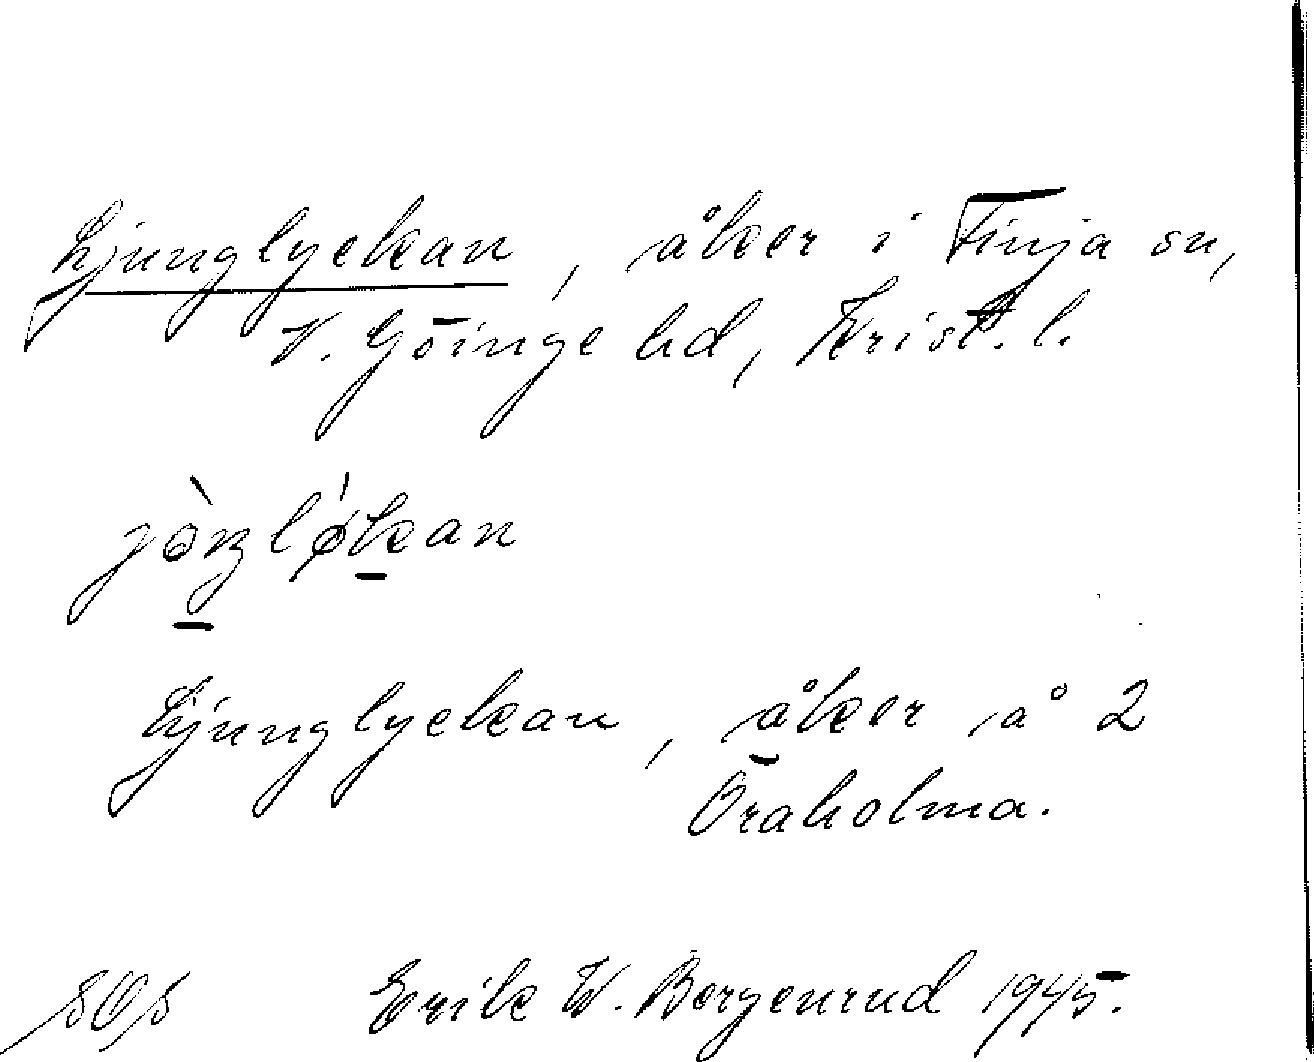 Ljunglyckan, åker i Finja sn,
V. Göinge hd, Krist. l.
Ljunglyckan, åker å 2
Öraholma.
Erik W. Bergenrud 1945.